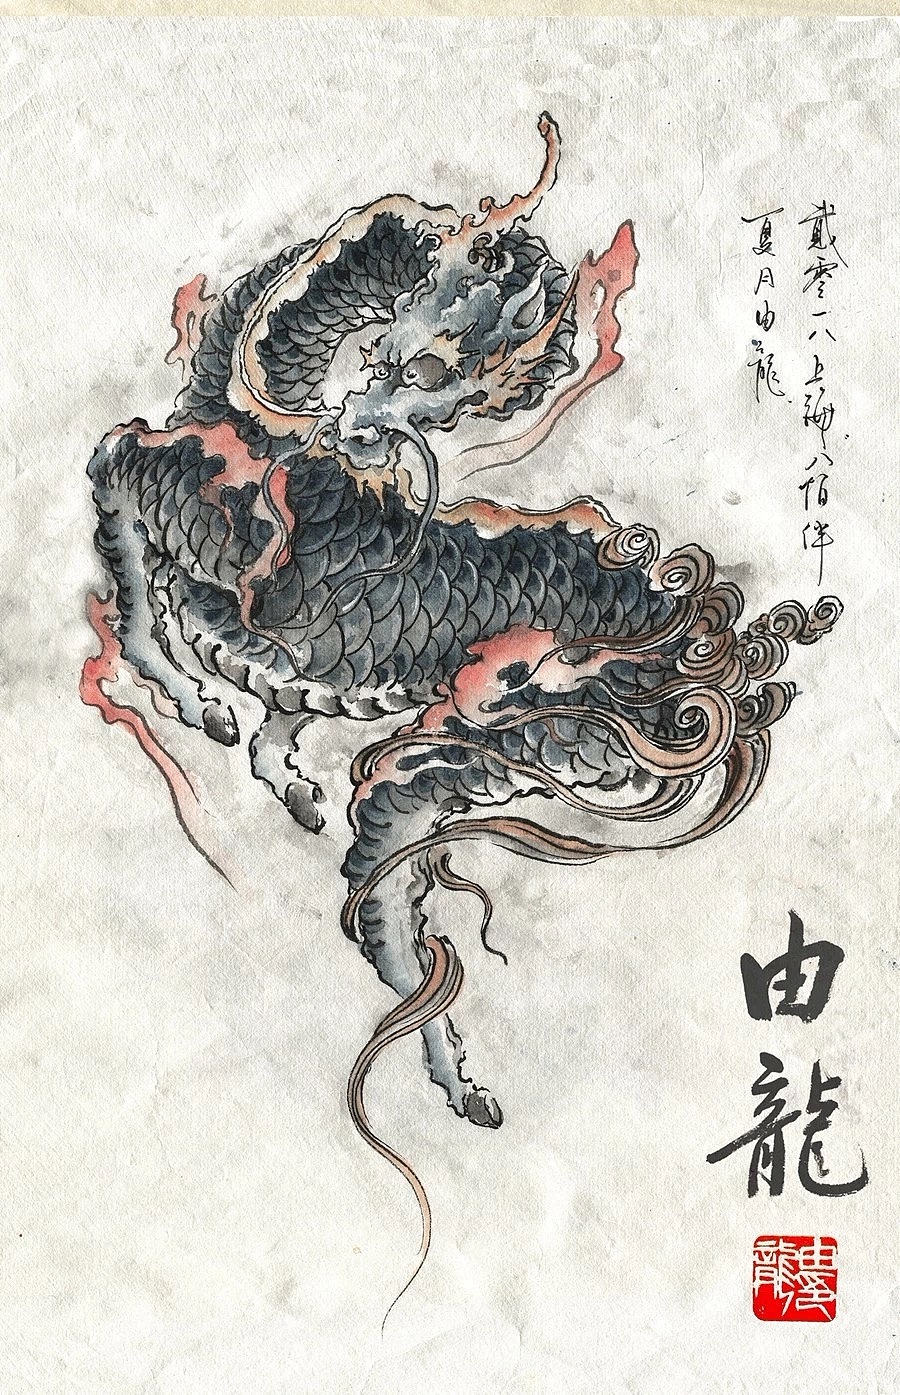 貳零一八上海八佰伴
夏月由龍
由龍